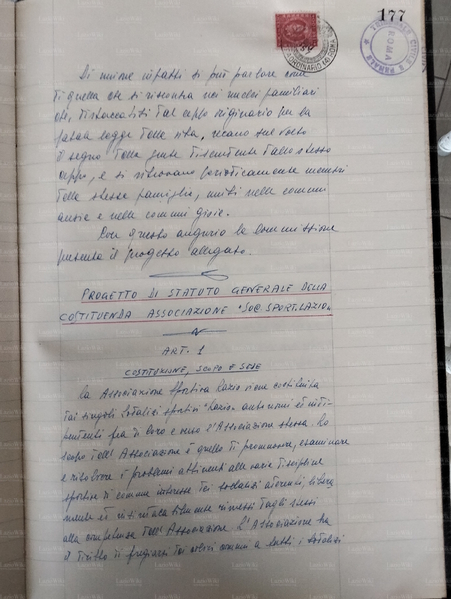 177
TRIBUNALE CIVILE E PENALE
ROMA
Di unione infatti si può parlare come
di quella che si riscontra nei nuclei familiari
che, distaccatisi dal ceppo originario per la
fatal legge della vita, recano sul volto
il segno della gente discendente dallo stesso
ceppo, e si ritrovano periodicamente membri
della stessa famiglia, uniti nelle comuni
ansie e nelle comuni gioie.
Con questo augurio la Commissione
presenta il progetto allegato.
PROGETTO DI STATUTO GENERALE DELLA
COSTITUENDA ASSOCIAZIONE "SOC. SPORT. LAZIO"
ART. 1
COSTITUZIONE, SCOPO E SEDE
La Associazione Sportiva Lazio viene costituita
dai singoli sodalizi sportivi "Lazio" autonomi ed indi-
pendenti fra di loro e verso l'Associazione stessa. Lo
scopo dell'Associazione è quello di promuovere, esaminare
e risolvere i problemi attinenti alle varie discipline
sportive di comune interesse dei sodalizi aderenti, libera
mente ed insindacabilmente rimessi dagli stessi
alla competenza dell'Associazione. L'Associazione ha
il diritto di fregiarsi dei colori comuni a tutti i sodalizi